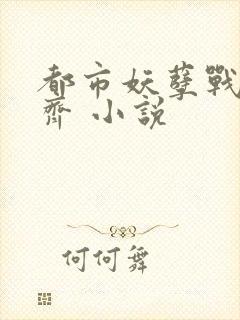 都市妖孽戰
齊 小說
何何舞